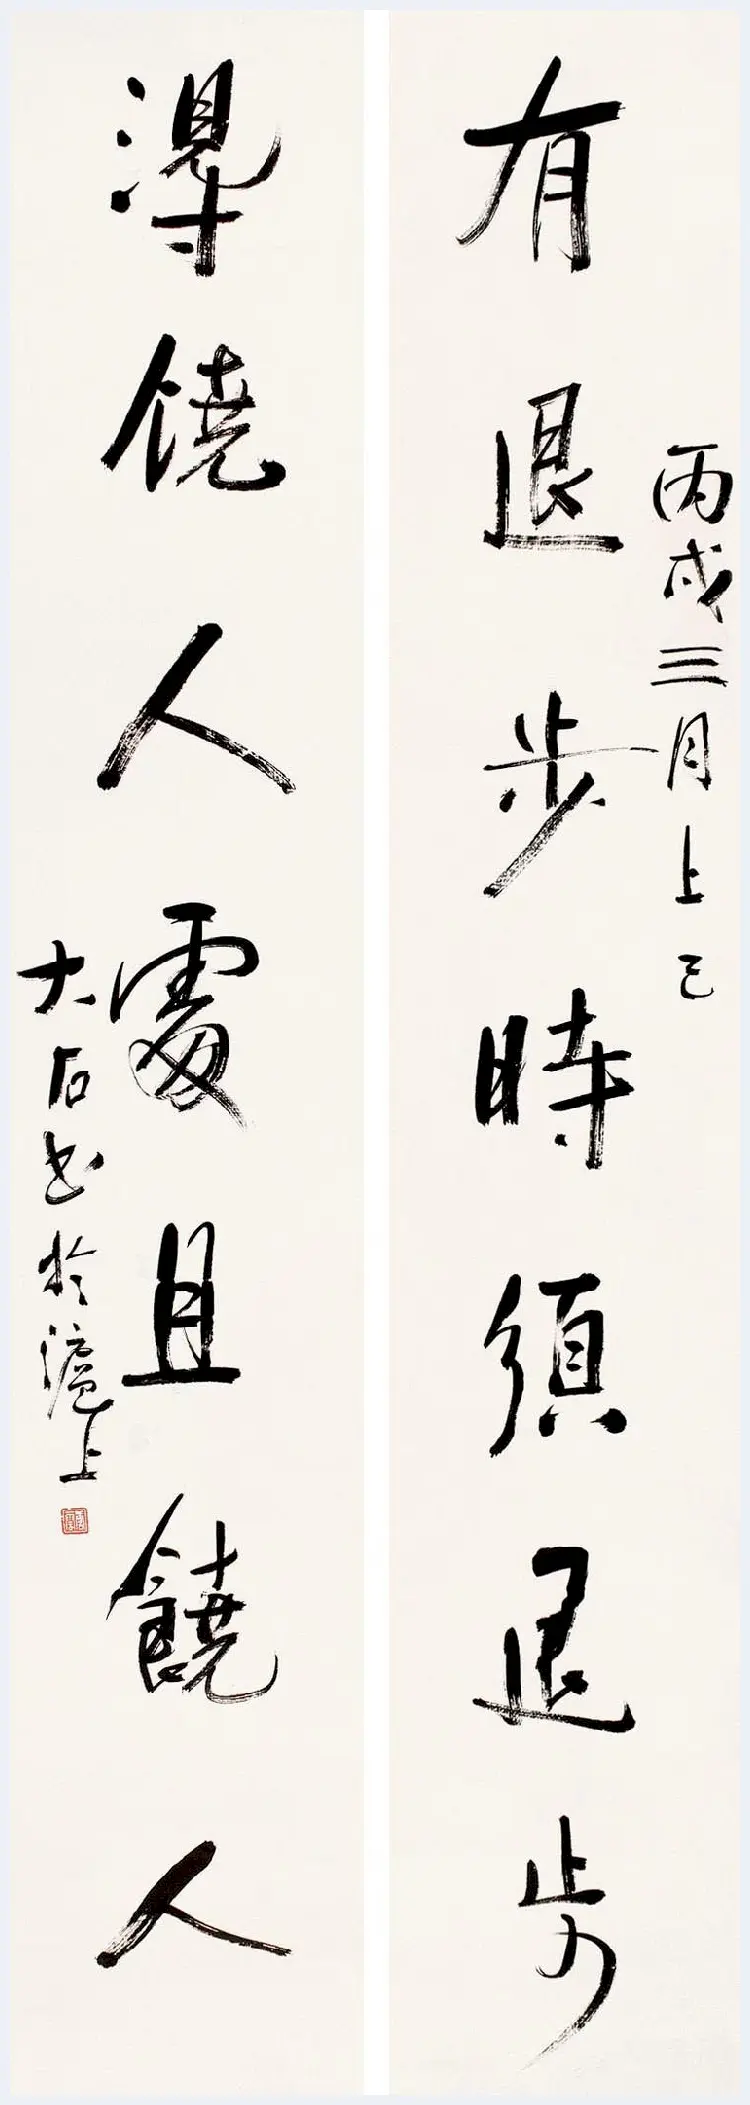 丙戌三月上巳
有退步時須退步
得饒人處且饒人
大石書於滬上